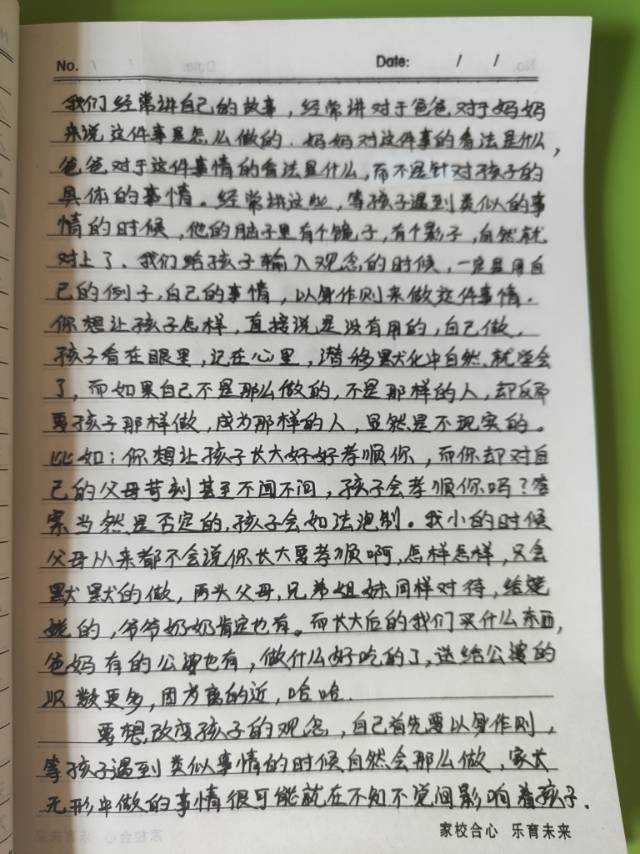 No. / /
Date: / /
我们经常讲自己的故事，经常讲对于爸爸对于妈妈
来说这件事是怎么做的．妈妈对这件事的看法是什么，
爸爸对于这件事情的看法是什么，而不是针对孩子的
具体的事情。经常讲这些，等孩子遇到类似的事
情的时候，他的脑子里有个镜子，有个影子，自然就
对上了、我们给孩子输入观念的时候，一定是用自
己的例子，自己的事情，以身作则来做这件事情．
你想让孩子怎样，直接说是没有用的，自己做，
孩子看在眼里，记在心里，潜移默化中自然．就学会
了，而如果自己不是那么做的，不是那样的人，却反而
要孩子那样做，成为那样的人，显然是不现实的。
比如：你想让孩子长大好好孝顺你，而你却对自
己的父母苛刻甚至不闻不问，孩子会孝顺你吗？答
案当然是否定的，孩子会如法泡制。我小的时候
父母从来都不会说你长大要孝顺啊，怎样怎样，只会
默默的做，两头父母，兄弟姐妹同样对待，给姥
姥的，爷爷奶奶肯定也有。而长大后的我们买什么东西，
爸妈有的公婆也有，做什么好吃的了，送给公婆的
次数更多，因为离的近，哈哈．
要想改变孩子的观念，自己首先要以身作则，
等孩子遇到类似事情的时候自然会那么做，家长
无形中做的事情很可能就在不知不觉间影响着孩子．
家校合心 乐育未来